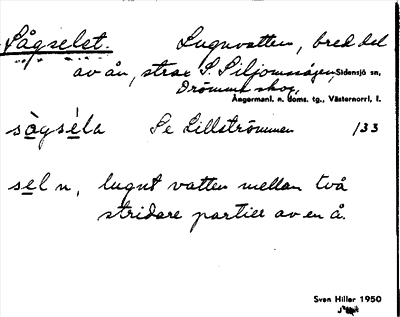 Sågselet. Lugnvatten, bred del
av ån, strax S. Siljomsågen, Sidensjö sn,
Drömme skog,
Ångermanl. n. doms. tg., Västernorrl. l.
sògséla Se Lillströmmen 133
sel n, lugnt vatten mellan två
stridare partier av en å.
Sven Hiller 1950